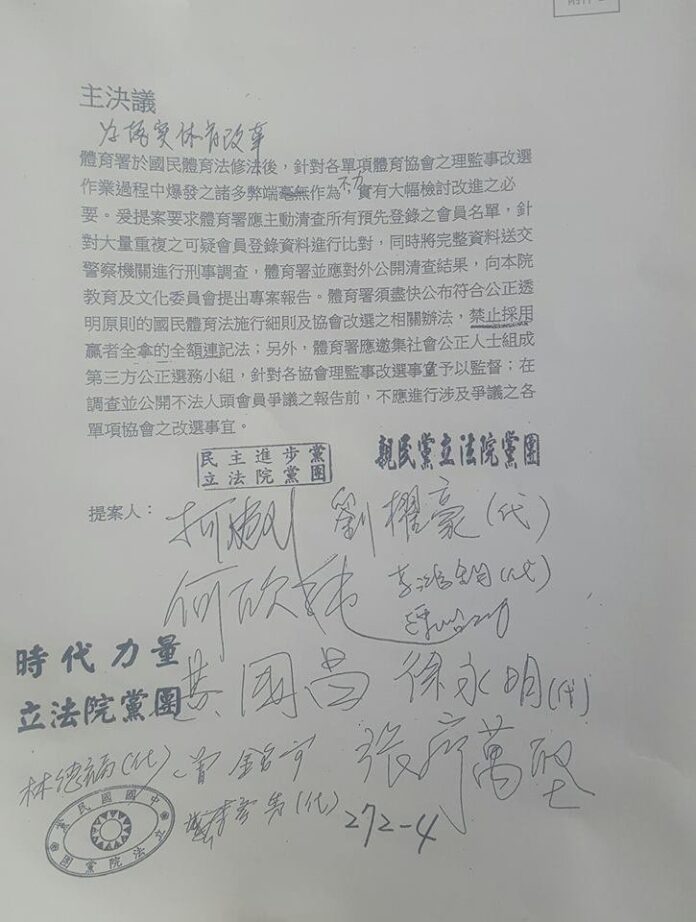 主決議
為落實體育改革
體育署於國民體育法修法後，針對各單項體育協會之理監事改選
作業過程中爆發之諸多弊端毫無作為不力，實有大幅檢討改進之必
要。爰提案要求體育署應主動清查所有預先登錄之會員名單，針
對大量重複之可疑會員登錄資料進行比對，同時將完整資料送交
警察機關進行刑事調查，體育署並應對外公開清查結果，向本院
教育及文化委員會提出專案報告。體育署須盡快公布符合公正透
明原則的國民體育法施行細則及協會改選之相關辦法，禁止採用
贏者全拿的全額連記法；另外，體育署應邀集社會公正人士組成
第三方公正選務小組，針對各協會理監事改選事宜予以監督；在
調查並公開不法人頭會員爭議之報告前，不應進行涉及爭議之各
單項協會之改選事宜。
民主進步黨
立法院黨團
親民黨立法院黨團
提案人：
劉櫂豪(代)
何欣純
李鴻鈞(代)
時代力量
立法院黨團
黃國昌
徐永明(代)
林德福(代)
曾銘宗
張廖萬堅
(代)
272-4
中國國民黨
立法院黨團